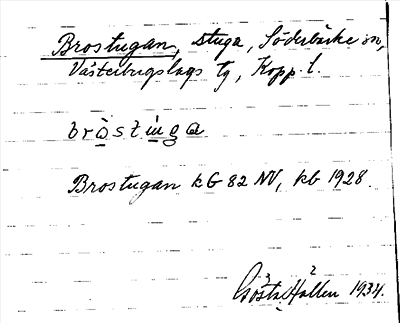 Brostugan, stuga, Söderbärke sn,
Västerbergslags tg, Kopp. l.
bràstiṇga
Brostugan kG 82 NV, kb 1928.
Gösta Hallén 1934.